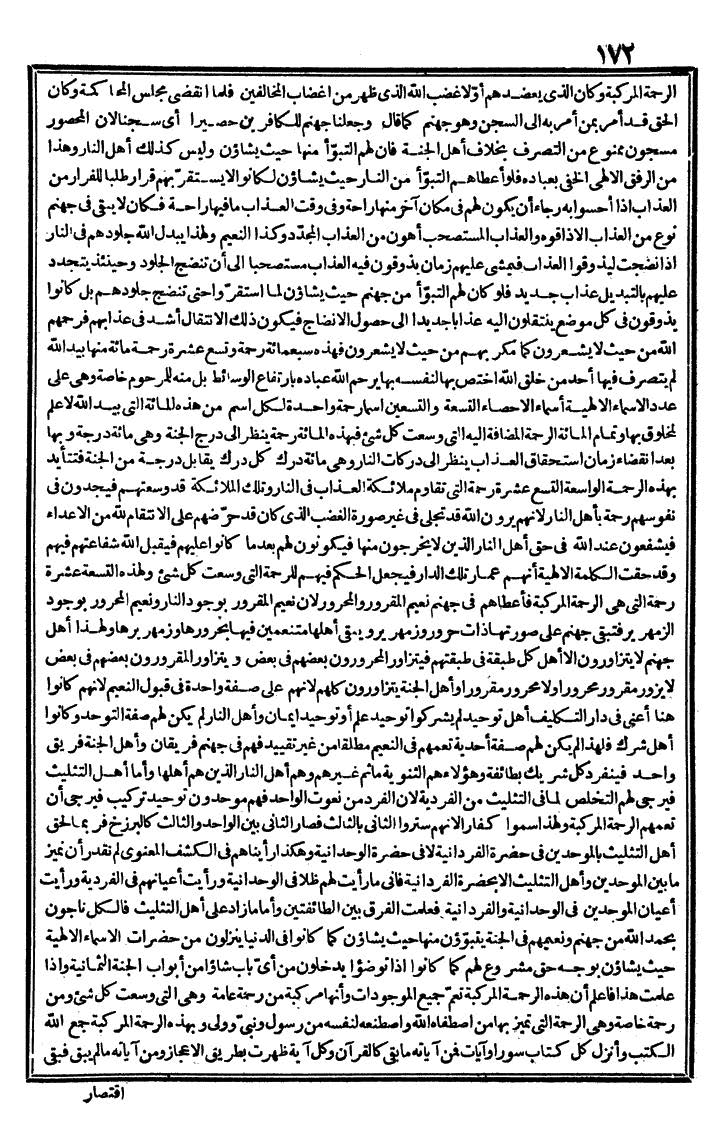 ١٧٢
الرحمة المركبة وكان الذى يعضدهم أولا غضب الله الذى ظهر من اغضاب المخالفين فلما انقضى مجلس المحاكمة وكان
الحق قد أمر بمن أمر به الى السجن وهو جهنم كما قال وجعلنا جهنم للكافرين حصيرا أى سجنا لان المحصور
مسجون ممنوع من التصرف بخلاف أهل الجنة فان لهم التبوّأ منها حيث يشاؤن وليس كذلك أهل النار وهذا
من الرفق الالهى الخفى بعباده فلو أعطاهم التبوّأ من النار حيث يشاؤن لكانوا لا يستقر بهم قرار طلبا للفرار من
العذاب اذا أحسوا به رجاء أن يكون لهم فى مكان آخر منها راحة وفى وقت العذاب ما فيها راحة فكان لا يبقى فى جهنم
نوع من العذاب الا ذاقوه والعذاب المستصحب أهون من العذاب المجدّد وكذا النعيم ولهذا يبدل الله جلودهم فى النار
اذا نضجت ليذوقوا العذاب فيمشى عليهم زمان يذوقون فيه العذاب مستصحبا الى أن تنضج الجلود وحينئذ يتجدد
عليهم بالتبديل عذاب جديد فلو كان لهم التبوّأ من جهنم حيث يشاؤن لما استقرّوا حتى تنضج جلودهم بل كانوا
يذوقون فى كل موضع ينتقلون اليه عذابا جديدا الى حصول الانضاج فيكون ذلك الانتقال أشد فى عذابهم فرحمهم
الله من حيث لا يشعرون كما مكر بهم من حيث لا يشعرون فهذه سبعمائة رحمة وتسع عشرة رحمة مائة منها بيد الله
لم يتصرف فيها أحد من خلق الله اختص بها لنفسه بها يرحم الله عباده بارتفاع الوسائط بل منه للمرحوم خاصة وهى على
عدد الاسماء الالهية أسماء الاحصاء التسعة والتسعين اسما رحمة واحدة لكل اسم من هذه المائة التى بيد الله لا علم
لمخلوق بها وتمام المائة الرحمة المضافة اليه التى وسعت كل شئ فبهذه المائة رحمة ينظر الى درج الجنة وهى مائة درجة وبها
بعد انقضاء زمان استحقاق العذاب ينظر الى دركات النار وهى مائة درك كل درك يقابل درجة من الجنة فتتأيد
بهذه الرحمة الواسعة التسع عشرة رحمة التى تقاوم ملائكة العذاب فى النار وتلك الملائكة قد وسعتهم فيجدون فى
نفوسهم رحمة بأهل النار لانهم يرون الله قد تجلى فى غير صورة الغضب الذى كان قد حرّضهم على الانتقام لله من الاعداء
فيشفعون عند الله فى حق أهل النار الذين لا يخرجون منها فيكونون لهم بعد ما كانوا عليهم فيقبل الله شفاعتهم فيهم
وقد حقت الكلمة الالهية أنهم عمار تلك الدار فيجعل الحكم فيهم للرحمة التى وسعت كل شئ ولهذه التسعة عشرة
رحمة التى هى الرحمة المركبة فأعطاهم فى جهنم نعيم المقرور والمحرور لان نعيم المقرور بوجود النار ونعيم المحرور بوجود
الزمهرير فتبقى جهنم على صورتها ذات حرور وزمهرير ويبقى أهلها متنعمين فيها بحرورها وزمهريرها ولهذا أهل
جهنم لا يتزاورون الا أهل كل طبقة فى طبقتهم فيتزاور المحرورون بعضهم فى بعض ويتزاور المقرورون بعضهم فى بعض
لا يزور مقرور محرورا ولا محرور مقرورا وأهل الجنة يتزاورون كلهم لانهم على صفة واحدة فى قبول النعيم لانهم كانوا
هنا أعنى فى دار التكليف أهل توحيد لم يشركوا توحيد علم أو توحيد ايمان وأهل النار لم يكن لهم صفة التوحد وكانوا
أهل شرك فلهذا لم يكن لهم صفة أحدية تعمهم فى النعيم مطلقا من غير تقييد فهم فى جهنم فريقان وأهل الجنة فريق
واحد فينفرد كل شريك بطائفة وهؤلاء هم الثنوية ما ثم غيرهم وهم أهل النار الذين هم أهلها وأما أهل التثليث
فيرجى لهم التخلص لما فى التثليث من الفردية لان الفرد من نعوت الواحد فهم موحدون توحيد تركيب فيرجى أن
تعمهم الرحمة المركبة ولهذا سموا كفارا لانهم ستروا الثانى بالثالث فصار الثانى بين الواحد والثالث كالبرزخ فربما لحق
أهل التثليث بالموحدين فى حضرة الفردانية لا فى حضرة الوحدانية وهكذا رأيناهم فى الكشف المعنوى لم نقدر أن نميز
ما بين الموحدين وأهل التثليث الا بحضرة الفردانية فانى ما رأيت لهم ظلا فى الوحدانية ورأيت أعيانهم فى الفردية ورأيت
أعيان الموحدين فى الوحدانية والفردانية فعلمت الفرق بين الطائفتين وأما ما زاد على أهل التثليث فالكل ناجون
بحمد الله من جهنم ونعيمهم فى الجنة يتبوّؤن منها حيث يشاؤن كما كانوا فى الدنيا ينزلون من حضرات الاسماء الالهية
حيث يشاؤن بوجه حق مشروع لهم كما كانوا اذا توضؤا يدخلون من أىّ باب شاؤا من أبواب الجنة الثمانية واذا
علمت هذا فاعلم أن هذه الرحمة المركبة تعمّ جميع الموجودات وأنها مركبة من رحمة عامة وهى التى وسعت كل شئ ومن
رحمة خاصة وهى الرحمة التى تميز بها من اصطفاه الله واصطنعه لنفسه من رسول ونبىّ وولى وبهذه الرحمة المركبة جمع الله
الكتب وأنزل كل كتاب سورا وآيات فمن آياته ما بقى كالقرآن وكل آية ظهرت بطريق الاعجاز ومن آياته ما لم يبق فبقى
اقتصار